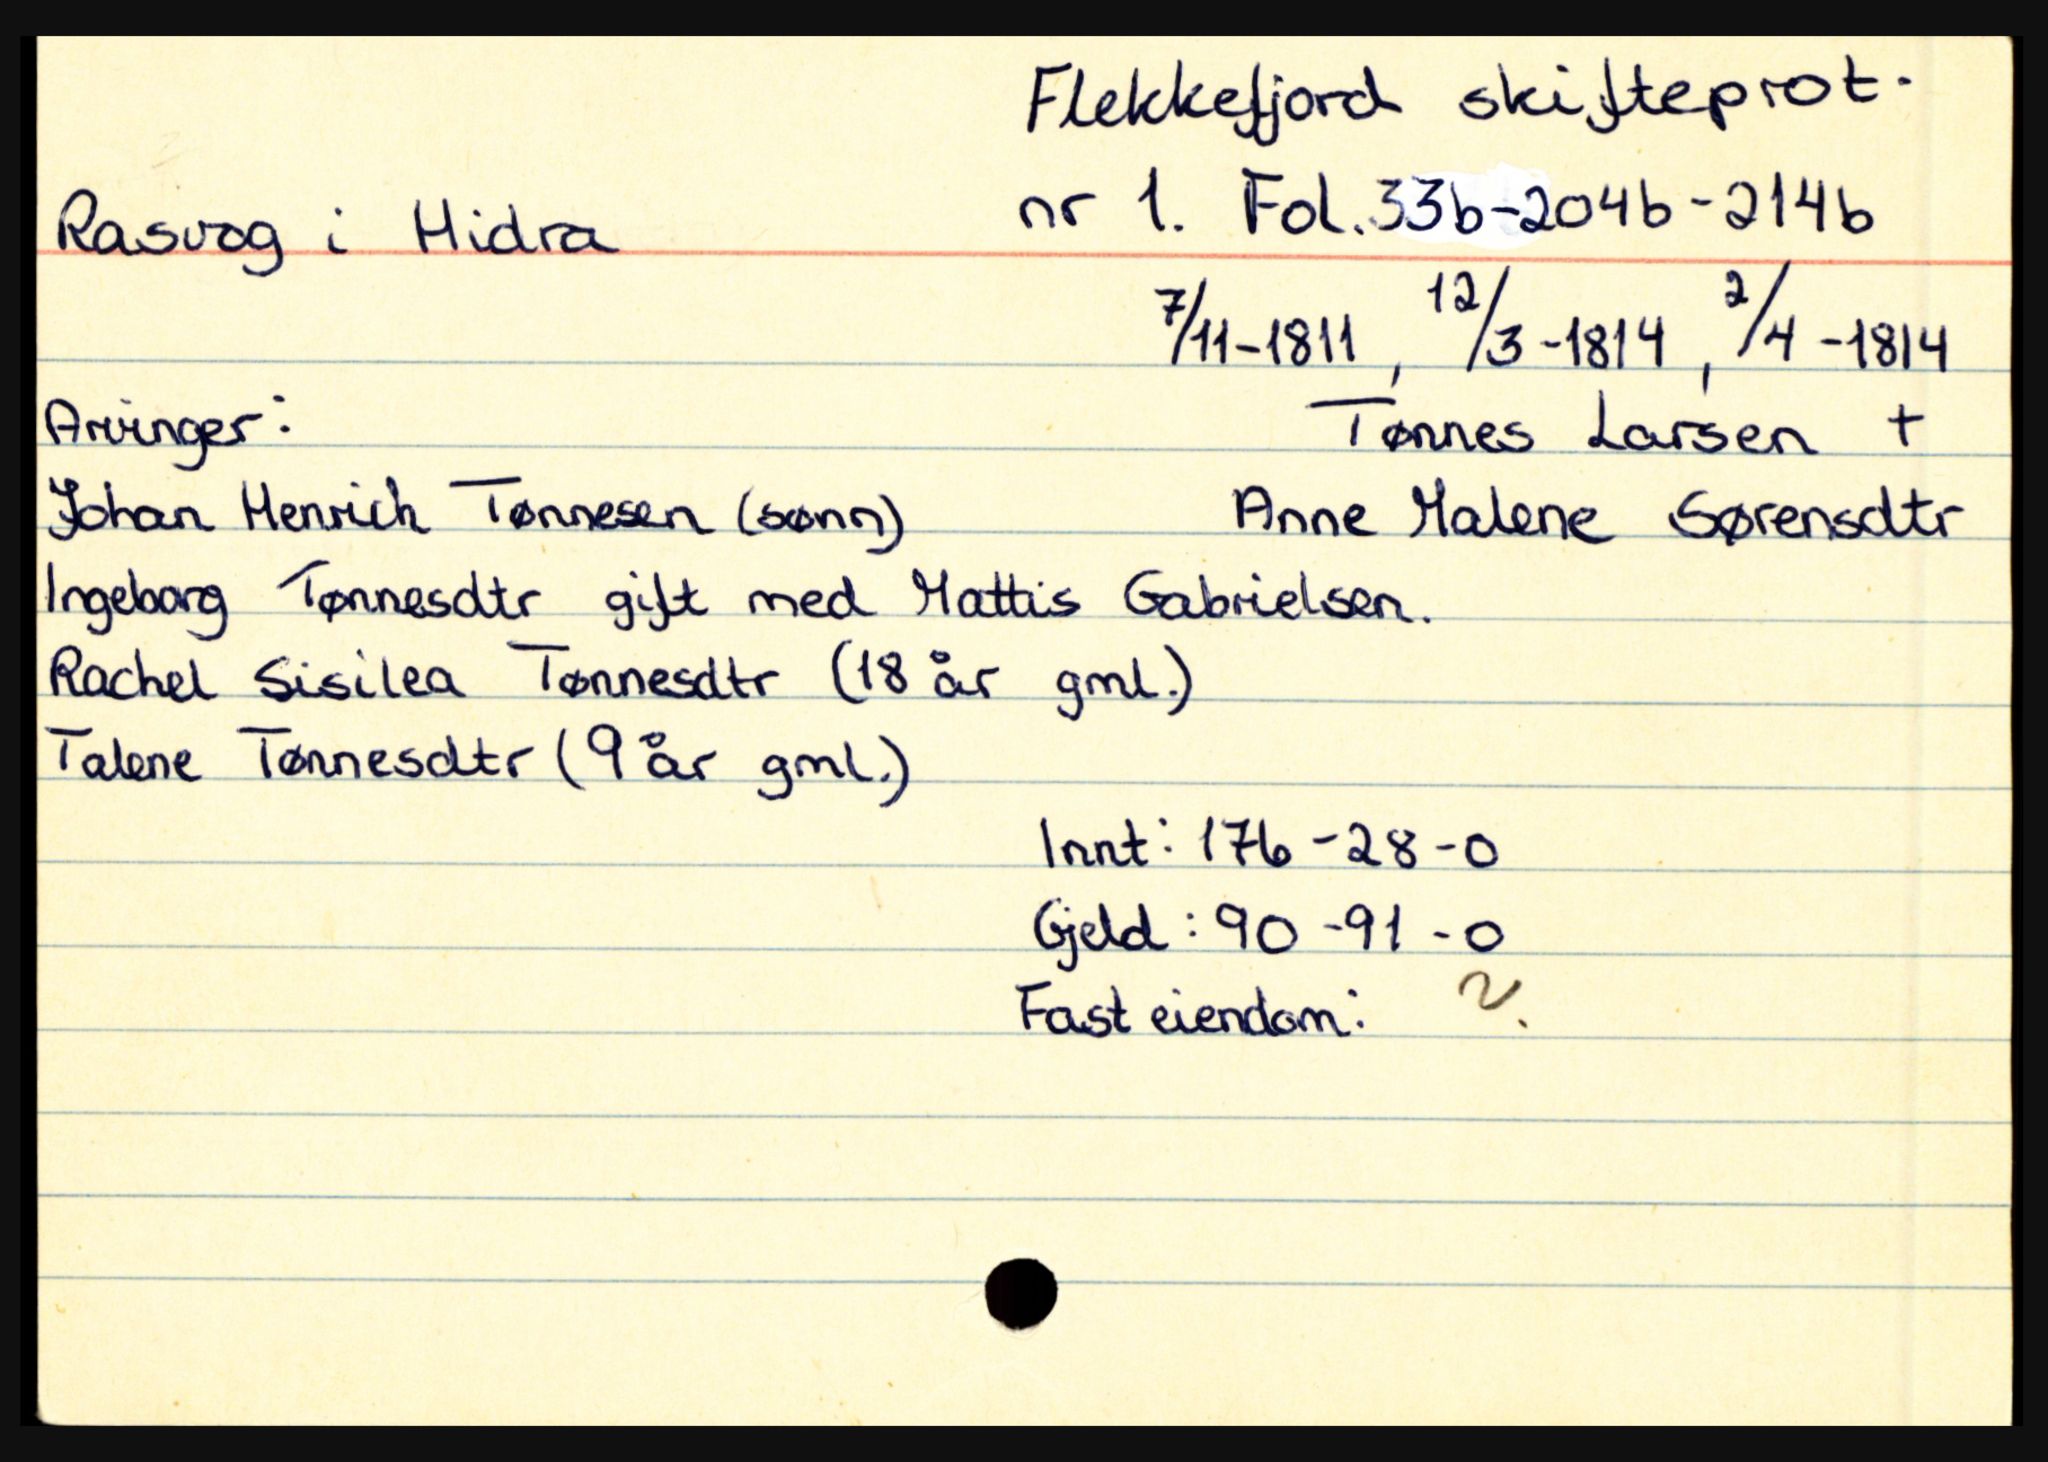 Flekkefjord skifteprot.
Rasvog i Hidra
nr 1. Fol. 33b-204b-214b
7/11-1811, 12/3-1814, 2/4-1814
Arvinger:
Tønnes Larsen +
Johan Henrich Tønnesen (sønn)
Anne Malene Sørensdtr
Ingeborg Tønnesdtr gift med Mattis Gabrielsen.
Rachel Sisilea Tønnesdtr (18 år gml.)
Talene Tønnesdtr (9 år gml.)
Innt: 176-28-0
Gjeld: 90-91-0
Fast eiendom: